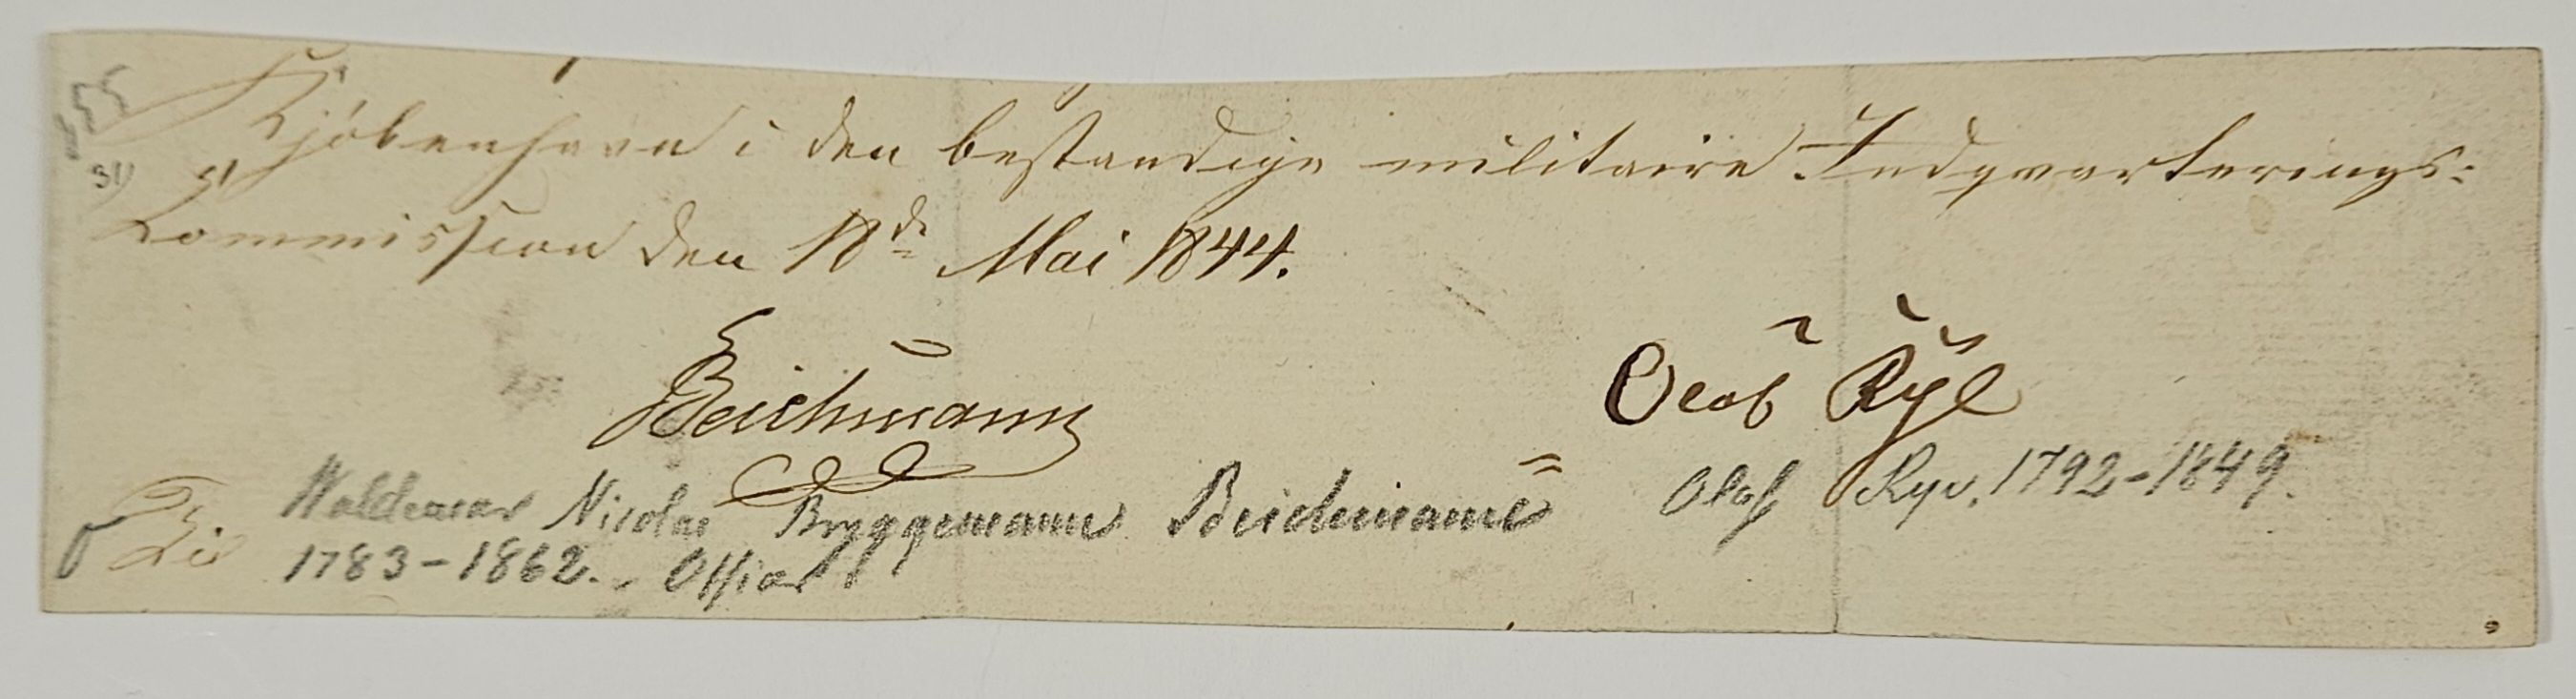 Kjöbenhavn i den bestandige militaire Indqvarterings:
Commission den 18de Mai 1844.
Beichmann
Olaf Rye
Waldemar Nicolai Bryggemann Beichmann
Olaf Rye. 1792-1849.
1783-1862. - Officer